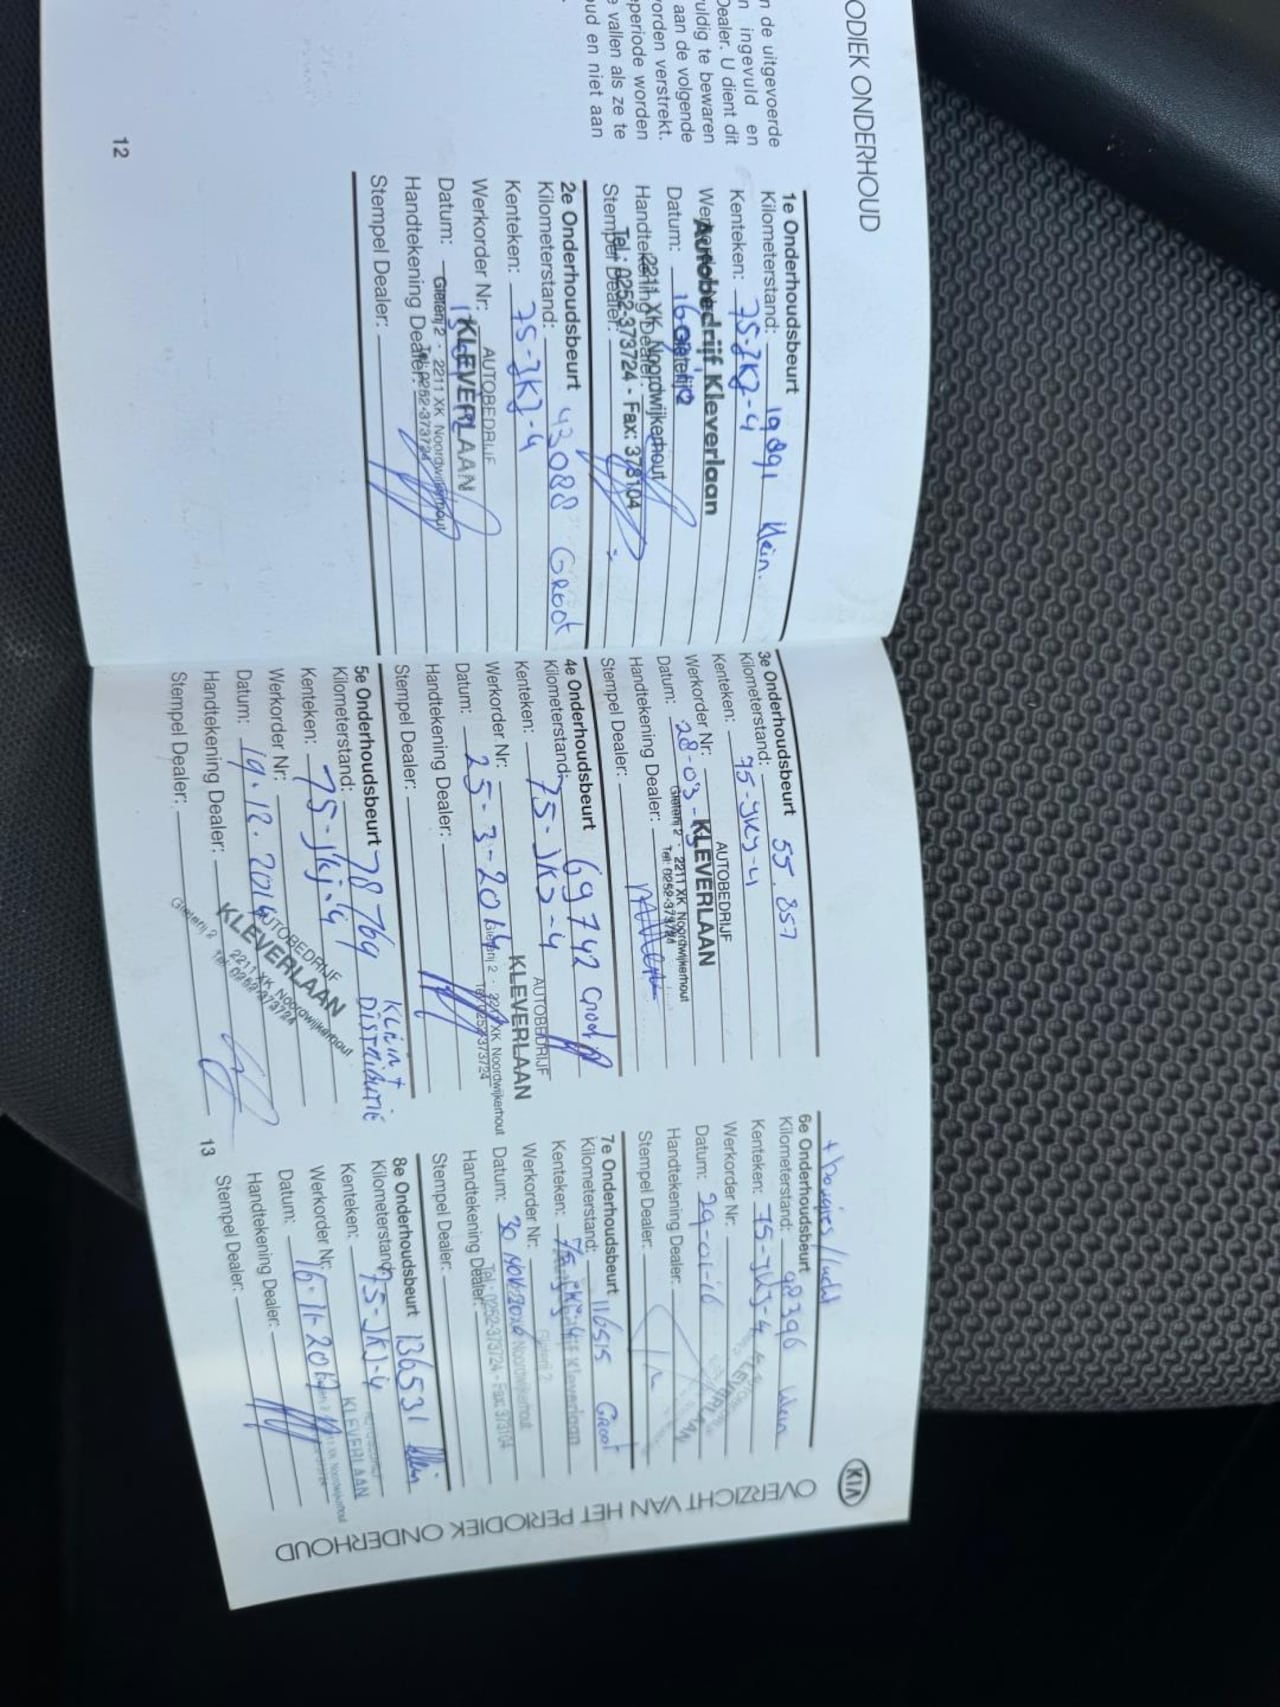 ODIEK ONDERHOUD
n de uitgevoerde
n ingevuld en
Dealer. U dient dit
uldig te bewaren
aan de volgende
orden verstrekt.
periode worden
e vallen als ze te
ud en niet aan
12
1e Onderhoudsbeurt
Kilometerstand: 19891 Klein.
Kenteken: 75-JKJ-4
Werkorder Nr:
Autobedrijf Kleverlaan
Datum: 16
Gieterij 2
Handtekening Dealer:
2211 XK Noordwijkerhout
Stempel Dealer:
Tel.: 0252-373724 - Fax: 373104
2e Onderhoudsbeurt
Kilometerstand: 43088 GROOT
Kenteken: 75-JKJ-4
Werkorder Nr:
AUTOBEDRIJF
KLEVERLAAN
Datum:
Gieterij 2 - 2211 XK Noordwijkerhout
Handtekening Dealer:
Tel: 0252-373724
Stempel Dealer:
3e Onderhoudsbeurt
Kilometerstand: 55.857
Kenteken: 75-JKJ-4
Werkorder Nr:
AUTOBEDRIJF
KLEVERLAAN
Datum: 28-03-
Gieterij 2 - 2211 XK Noordwijkerhout
Tel: 0252-373724
Handtekening Dealer:
Stempel Dealer:
4e Onderhoudsbeurt
Kilometerstand: 69742 Groot
Kenteken: 75-JKJ-4
Werkorder Nr:
AUTOBEDRIJF
KLEVERLAAN
Datum: 25-3-2014
Gieterij 2 - 2211 XK Noordwijkerhout
Tel: 0252-373724
Handtekening Dealer:
Stempel Dealer:
5e Onderhoudsbeurt
Kilometerstand: 78769 KLEIN +
DISTRIBUTIE
Kenteken: 75-JKJ-4
Werkorder Nr:
Datum: 19.12.2014
AUTOBEDRIJF
KLEVERLAAN
Gieterij 2 2211 XK Noordwijkerhout
Tel: 0252-373724
Handtekening Dealer:
Stempel Dealer:
13
6e Onderhoudsbeurt
Kilometerstand: 98396 Klein
Kenteken: 75-JKJ-4
Werkorder Nr:
Datum: 29-01-16
Handtekening Dealer:
Stempel Dealer:
7e Onderhoudsbeurt
Kilometerstand: 116515 GROOT
Kenteken: 75-JKJ-4
Kleverlaan
Werkorder Nr:
Gieterij 2
Datum: 30 NOV. 2016
Noordwijkerhout
Handtekening Dealer:
Tel.: 0252-373724 - Fax: 373104
Stempel Dealer:
8e Onderhoudsbeurt
Kilometerstand: 136531 Klein
Kenteken: 75-JKJ-4
Werkorder Nr:
KLEVERLAAN
Datum: 16-11-2017
Handtekening Dealer:
Stempel Dealer:
KIA
OVERZICHT VAN HET PERIODIEK ONDERHOUD